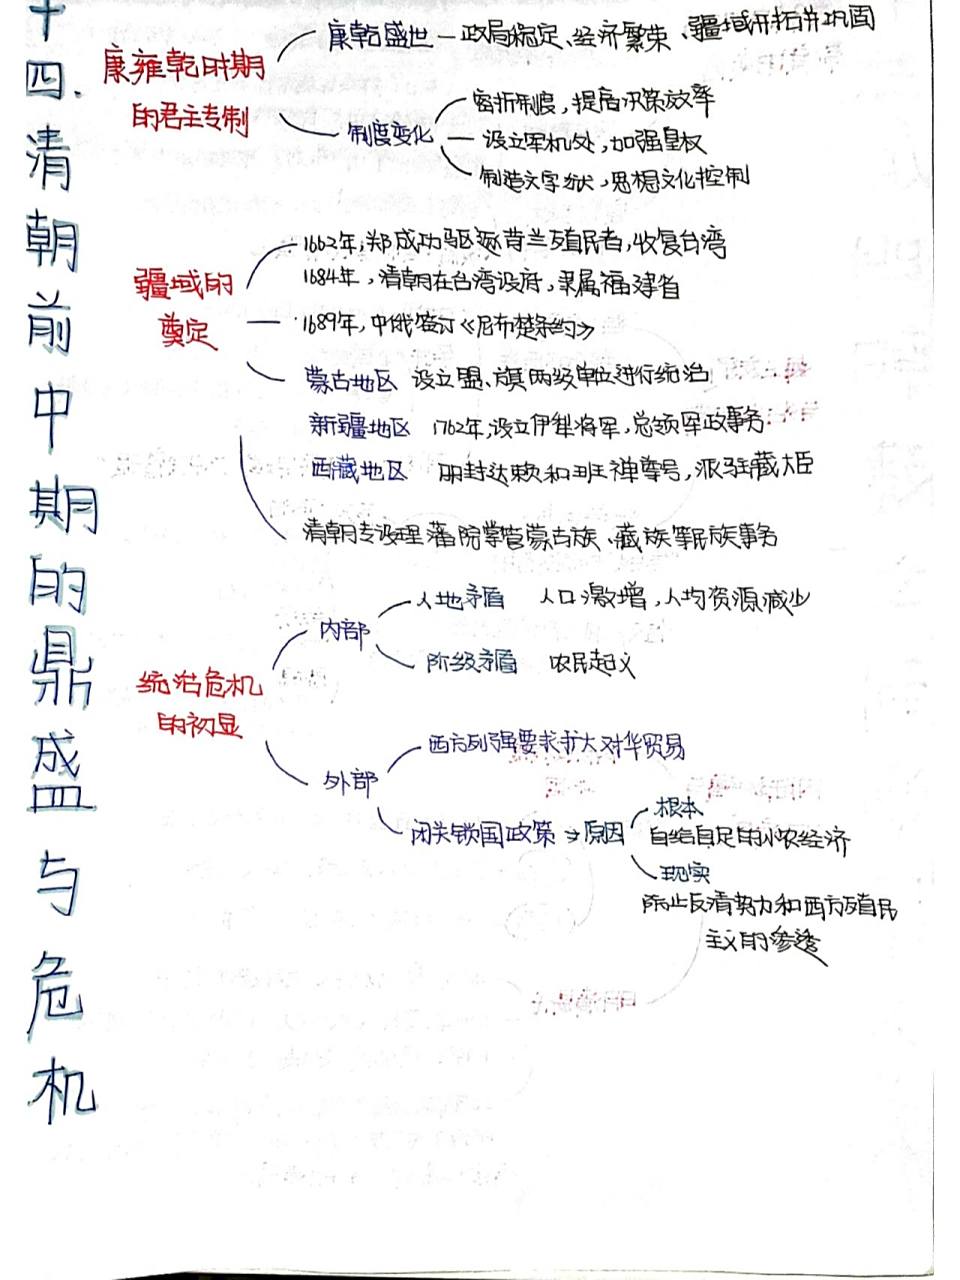 十四.清朝前中期的鼎盛与危机
康雍乾时期
的君主专制
康乾盛世 — 政局稳定、经济繁荣、疆域开拓并巩固
制度变化
密折制度，提高决策效率
设立军机处，加强皇权
制造文字狱，思想文化控制
疆域的
奠定
1662年，郑成功驱逐荷兰殖民者，收复台湾
1684年，清朝在台湾设府，隶属福建省
1689年，中俄签订《尼布楚条约》
蒙古地区 设立盟、旗两级单位进行统治
新疆地区 1762年，设立伊犁将军，总领军政事务
西藏地区 册封达赖和班禅尊号，派驻藏大臣
清朝专设理藩院掌管蒙古族、藏族等民族事务
统治危机
的初显
内部
人地矛盾 人口激增，人均资源减少
阶级矛盾 农民起义
外部
西方列强要求扩大对华贸易
闭关锁国政策→原因
根本
自给自足的小农经济
现实
防止反清势力和西方殖民
主义的渗透